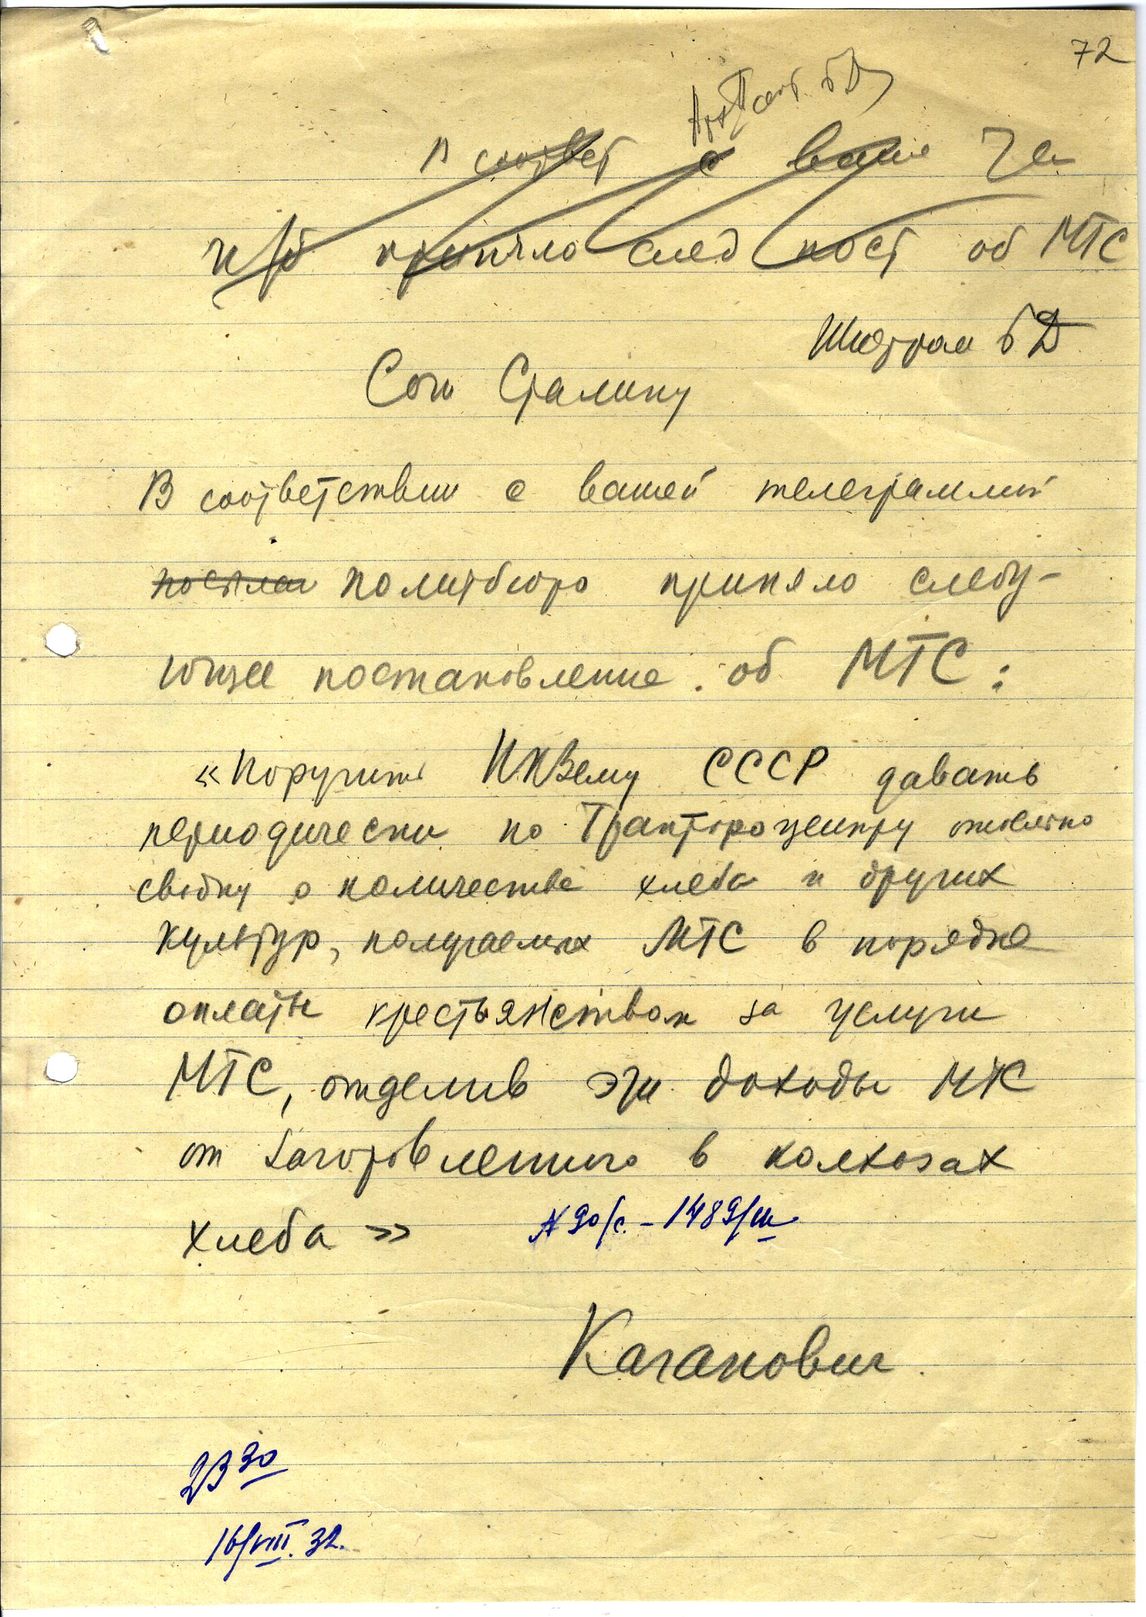 72
В соответ с ваше
п/б приняло след пост об МТС
Шифром
Сочи Сталину
В соответствии с вашей телеграммой
послан политбюро приняло следу-
ющее постановление об МТС:
«Поручить НКЗему СССР давать
периодически по Трактороцентру
сводку о количестве хлеба и других
культур, получаемых МТС в порядке
оплаты крестьянством за услуги
МТС, отделив эти доходы МТС
от заготовленного в колхозах
хлеба»
№ 90/с. - 1489/ш
Каганович
23 30
16/VIII. 32.